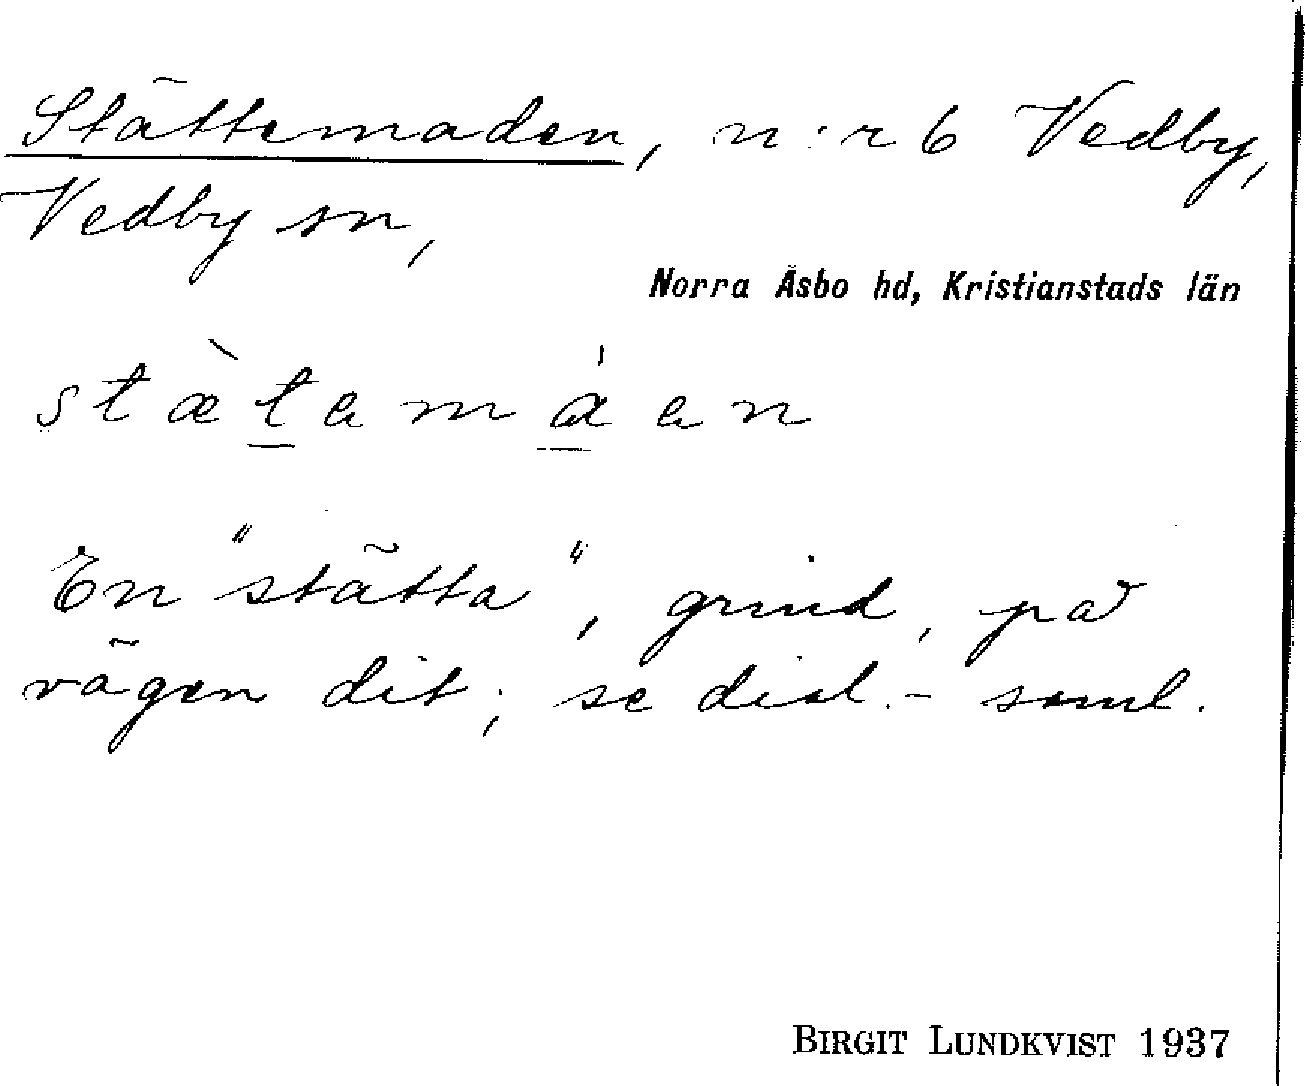 Stättemaden, n:r 6 Vedby,
Vedby sn,
Norra Åsbo hd, Kristianstads län
stæ̀t̲ɐmá̲ɐn
En "stätta", grind, på
vägen dit; se dial.-saml.
BIRGIT LUNDKVIST 1937